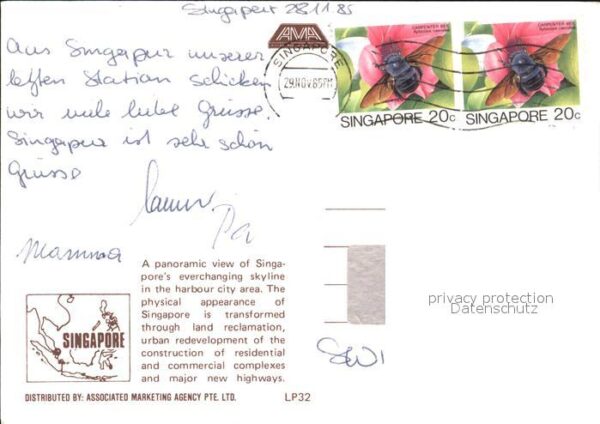 Singapur 28.11.85
AMA
Aus Singapur unserer
letzten Station schicken
wir viele liebe Grüsse.
Singapur ist sehr schön
Grüsse
Pa
Mamma
SINGAPORE
29 NOV 85 PM
CARPENTER BEE
SINGAPORE 20c
CARPENTER BEE
SINGAPORE 20c
A panoramic view of Singa-
pore's everchanging skyline
in the harbour city area. The
physical appearance of
Singapore is transformed
through land reclamation,
urban redevelopment of the
construction of residential
and commercial complexes
and major new highways.
SINGAPORE
privacy protection
Datenschutz
DISTRIBUTED BY: ASSOCIATED MARKETING AGENCY PTE. LTD.
LP32